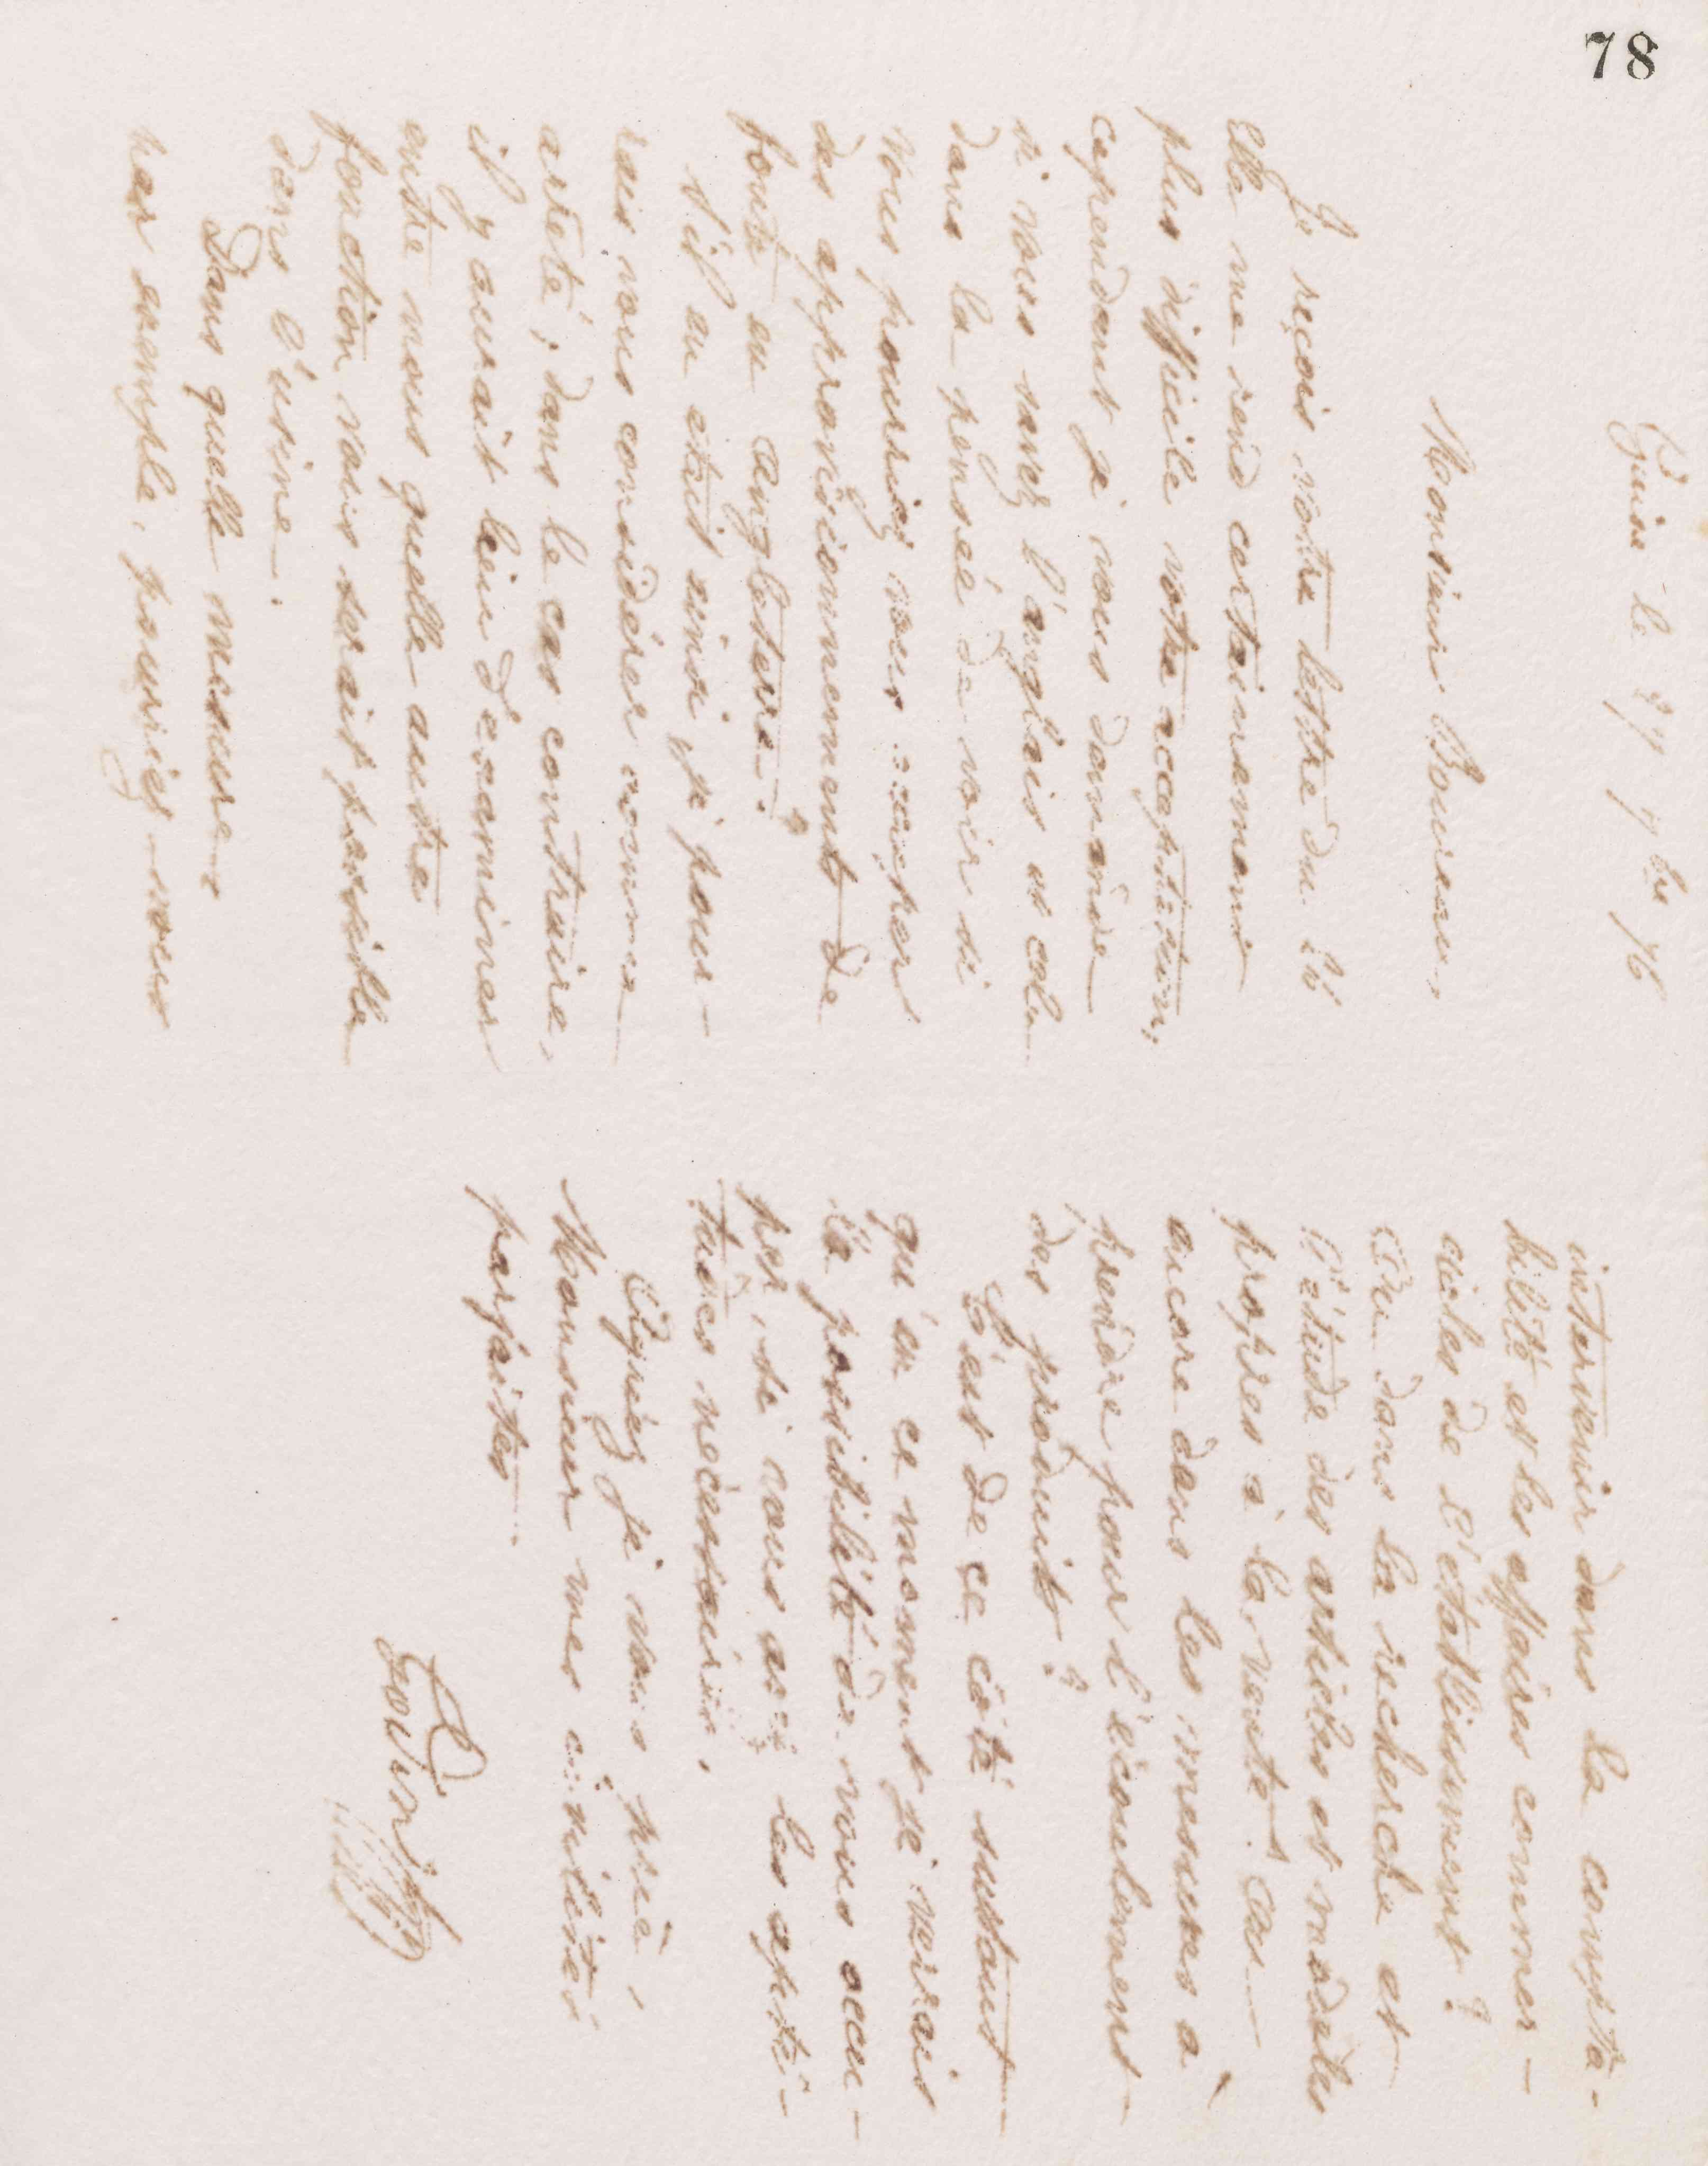 78
Guise le 27 7bre 76
Monsieur Boureau,
Je reçois votre lettre du 26
Elle me rend certainement
plus difficile votre acceptation;
cependant je vous demande
si vous savez l'anglais et cela
dans la pensée de voir si
vous pourriez vous occuper
des approvisionnements de
fonte en Angleterre?
S'il en était ainsi je pour-
rais vous considérer comme
arrêté; dans le cas contraire,
il y aurait lieu d'examiner
entre nous quelle autre
fonction vous serait possible
dans l'usine.
Dans quelle mesure
par exemple, pourriez-vous
intervenir dans la compta-
bilité et les affaires commer-
ciales de l'établissement?
Ou dans la recherche et
l'étude des articles et modèles
propres à la vente? Ou
encore dans les mesures à
prendre pour l'écoulement
des produits?
C'est de ce côté surtout
qu'en ce moment je verrais
la possibilité de vous occu-
per, si vous avez les apti-
tudes nécessaires.
Agréez je vous prie,
Monsieur mes civilités
parfaites.
Godin